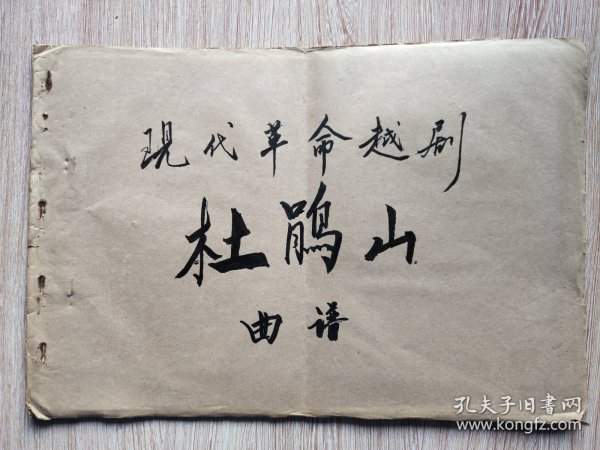 现代革命越剧
杜鹃山
曲谱
孔夫子旧書网
www.kongfz.com